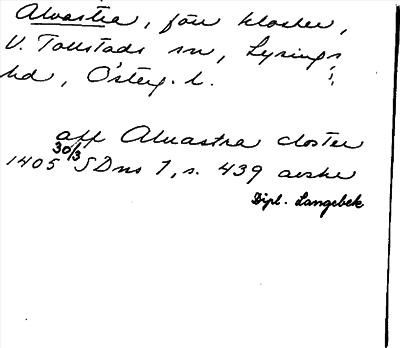 Alvastra, förr kloster,
V. Tollstads sn, Lysings
hd, Österg. l.
aff Alvastra closter
1405 30/3 SDns 1, s. 439 avskr
Dipl. Langebek